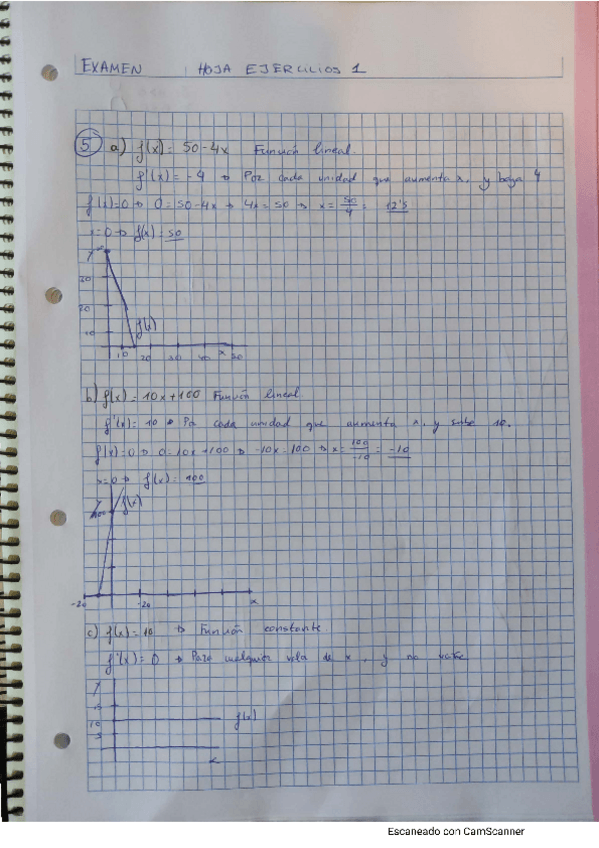 EXAMEN HOJA EJERCICIOS 1
5 a) f(x) = 50 - 4x Función lineal.
f'(x) = -4 → Por cada unidad que aumenta x, y baja 4
f(x)=0 → 0 = 50-4x → 4x = 50 → x = 50/4 = 12'5
x=0 → f(x) = 50
y
30
20
10
f(x)
10 20 30 40 x 50
b) f(x) = 10x+100 Función lineal
f'(x) = 10 → Por cada unidad que aumenta x, y sube 10.
f(x)=0 → 0=10x+100 → -10x=100 → x = 100/-10 = -10
x=0 → f(x) = 100
y
100
f(x)
-20 -20 x
c) f(x) = 10 → Función constante.
f'(x) = 0 → Para cualquier valor de x, y no varía
y
15
10
5
f(x)
x
Escaneado con CamScanner